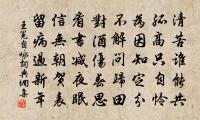 清苦誰能共
孤高只自憐
為因知定分
不解問歸田
對酒傷春思
看書減夜眠
信無朝賀表
留病過新年
王冕自詠詞典網集